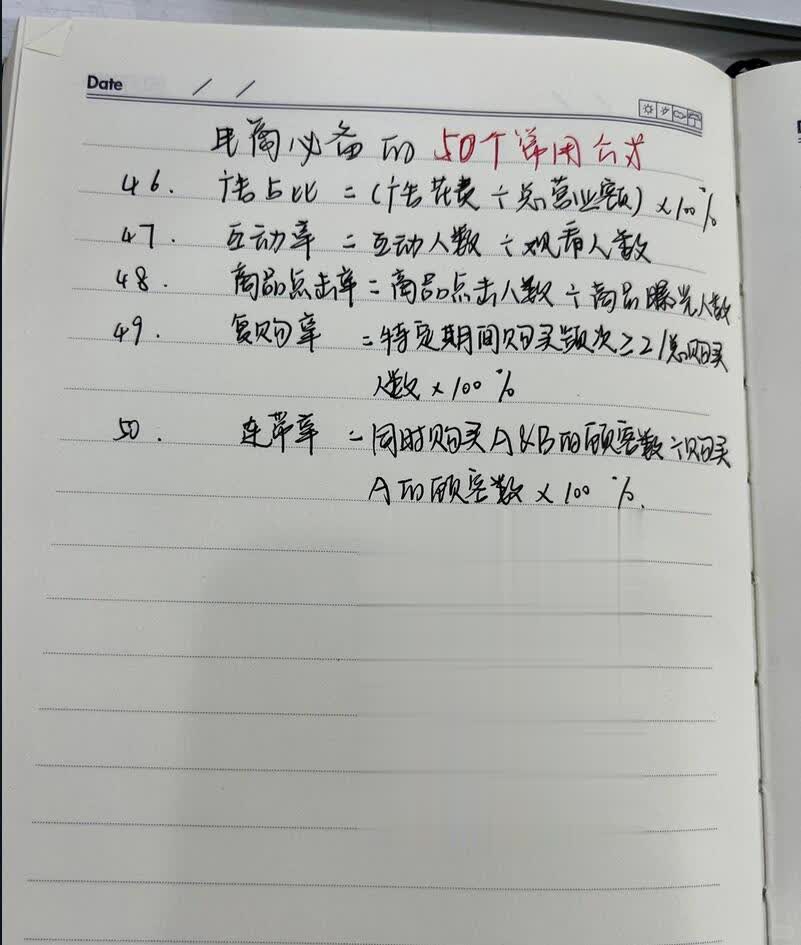 Date / /
电商必备的50个常用公式
46. 广告占比 = (广告花费 ÷ 总营业额) × 100%
47. 互动率 = 互动人数 ÷ 观看人数
48. 商品点击率 = 商品点击人数 ÷ 商品曝光人数
49. 复购率 = 特定期间购买频次 ≥ 2 / 总购买
人数 × 100%
50. 连带率 = 同时购买A&B的顾客数 ÷ 购买
A的顾客数 × 100%.